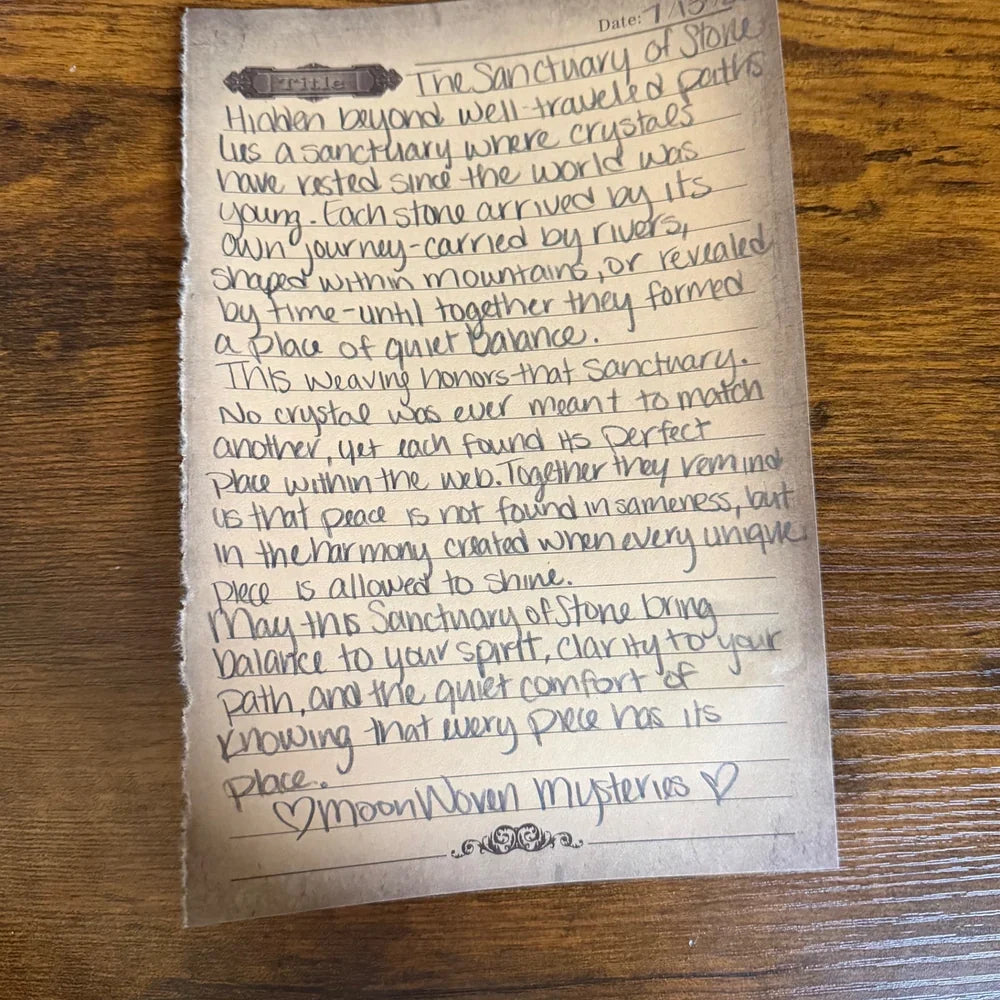 Date: 7/15/2
Title The Sanctuary of Stone
Hidden beyond well-traveled paths
lies a sanctuary where crystals
have rested since the world was
young. Each stone arrived by its
own journey-carried by rivers,
shaped within mountains, or revealed
by time-until together they formed
a place of quiet balance.
This weaving honors that sanctuary.
No crystal was ever meant to match
another, yet each found its perfect
place within the web. Together they remind
us that peace is not found in sameness, but
in the harmony created when every unique
piece is allowed to shine.
May this Sanctuary of Stone bring
balance to your spirit, clarity to your
path, and the quiet comfort of
knowing that every piece has its
place.
♡MoonWoven Mysteries♡